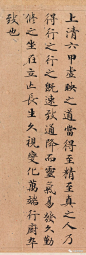 上清六甲虚映之道當得至精至真之人乃
得行之行之既速致通降而靈氣易發久勤
修之坐在立亡長生久視變化萬端行厨卒
致也